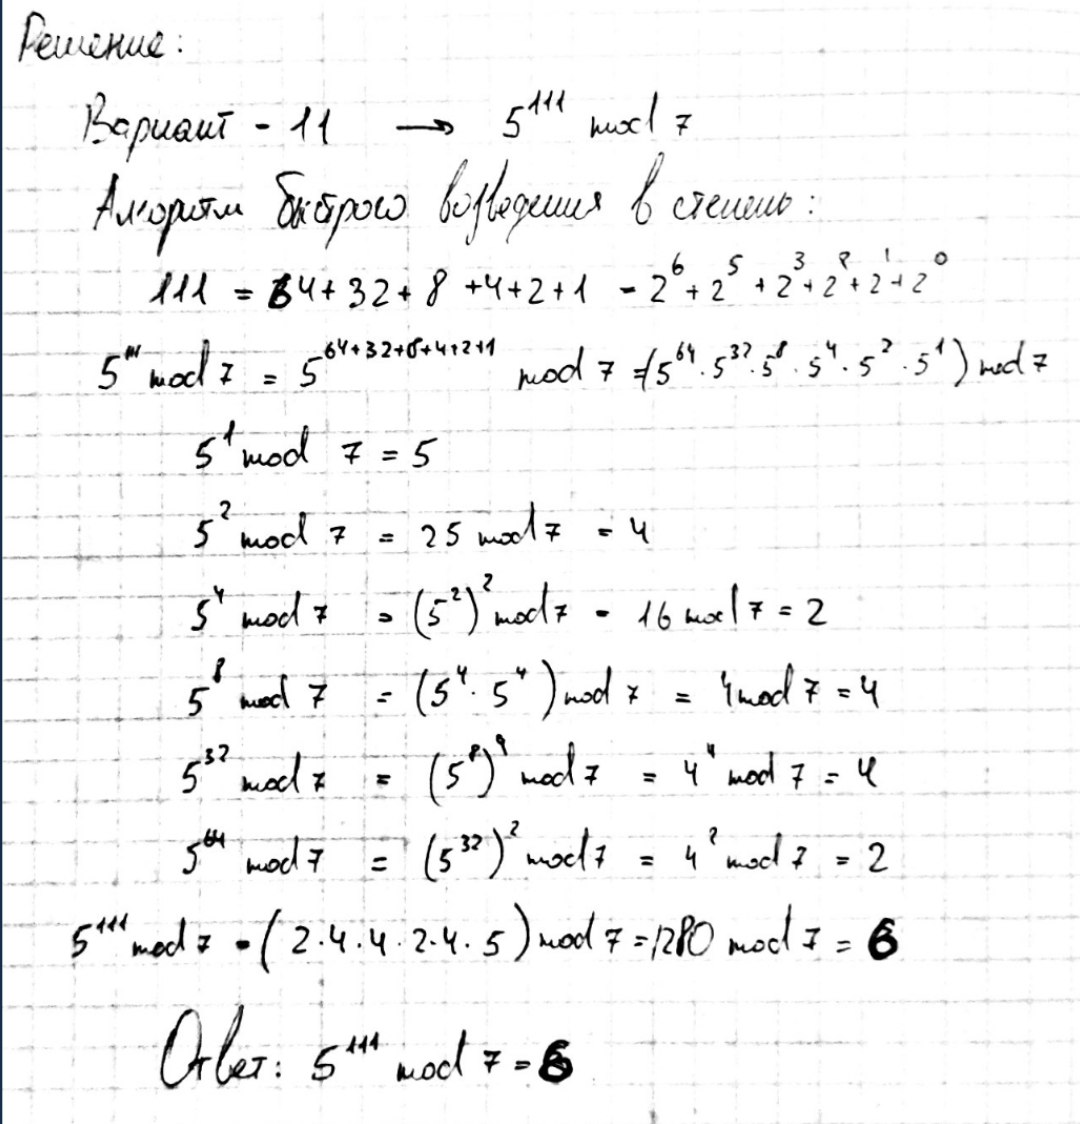 Решение:
Вариант - 11 → 5^111 mod 7
Алгоритм быстрого возведения в степень:
111 = 64+32+8+4+2+1 = 2^6+2^5+2^3+2^2+2^1+2^0
5^111 mod 7 = 5^64+32+8+4+2+1 mod 7 = (5^64 · 5^32 · 5^8 · 5^4 · 5^2 · 5^1) mod 7
5^1 mod 7 = 5
5^2 mod 7 = 25 mod 7 = 4
5^4 mod 7 = (5^2)^2 mod 7 = 16 mod 7 = 2
5^8 mod 7 = (5^4 · 5^4) mod 7 = 4 mod 7 = 4
5^32 mod 7 = (5^8)^4 mod 7 = 4^4 mod 7 = 4
5^64 mod 7 = (5^32)^2 mod 7 = 4^2 mod 7 = 2
5^111 mod 7 = (2·4·4·2·4·5) mod 7 = 1280 mod 7 = 6
Ответ: 5^111 mod 7 = 6